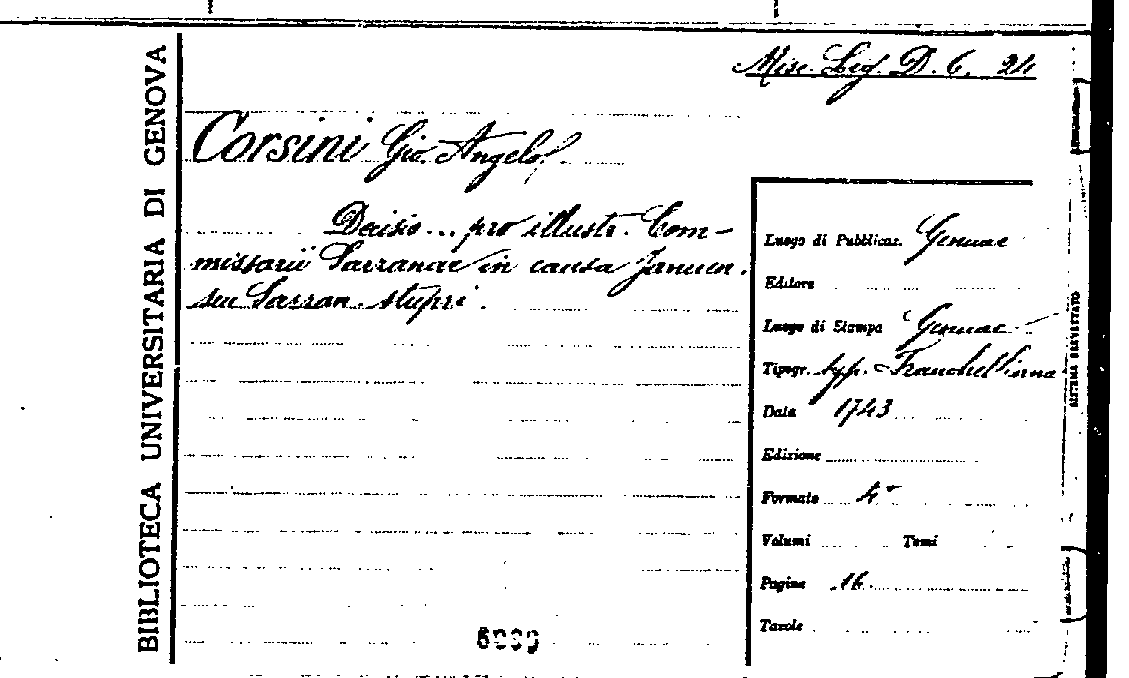 BIBLIOTECA UNIVERSITARIA DI GENOVA
Misc. Lig. D. 6. 24
Corsini Gio. Angelo.
Decisio... pro illustr. Com-
missarii Sarzanae in causa Januen.
seu Sarzan. stupri.
Luogo di Pubblicaz. Genuae
Editore
Luogo di Stampa Genuae
Tipogr. typ. Franchelliana
Data 1743
Edizione
Formato 4°
Volumi Tomi
Pagine 16.
Tavole
SISTEMA BREVETTATO